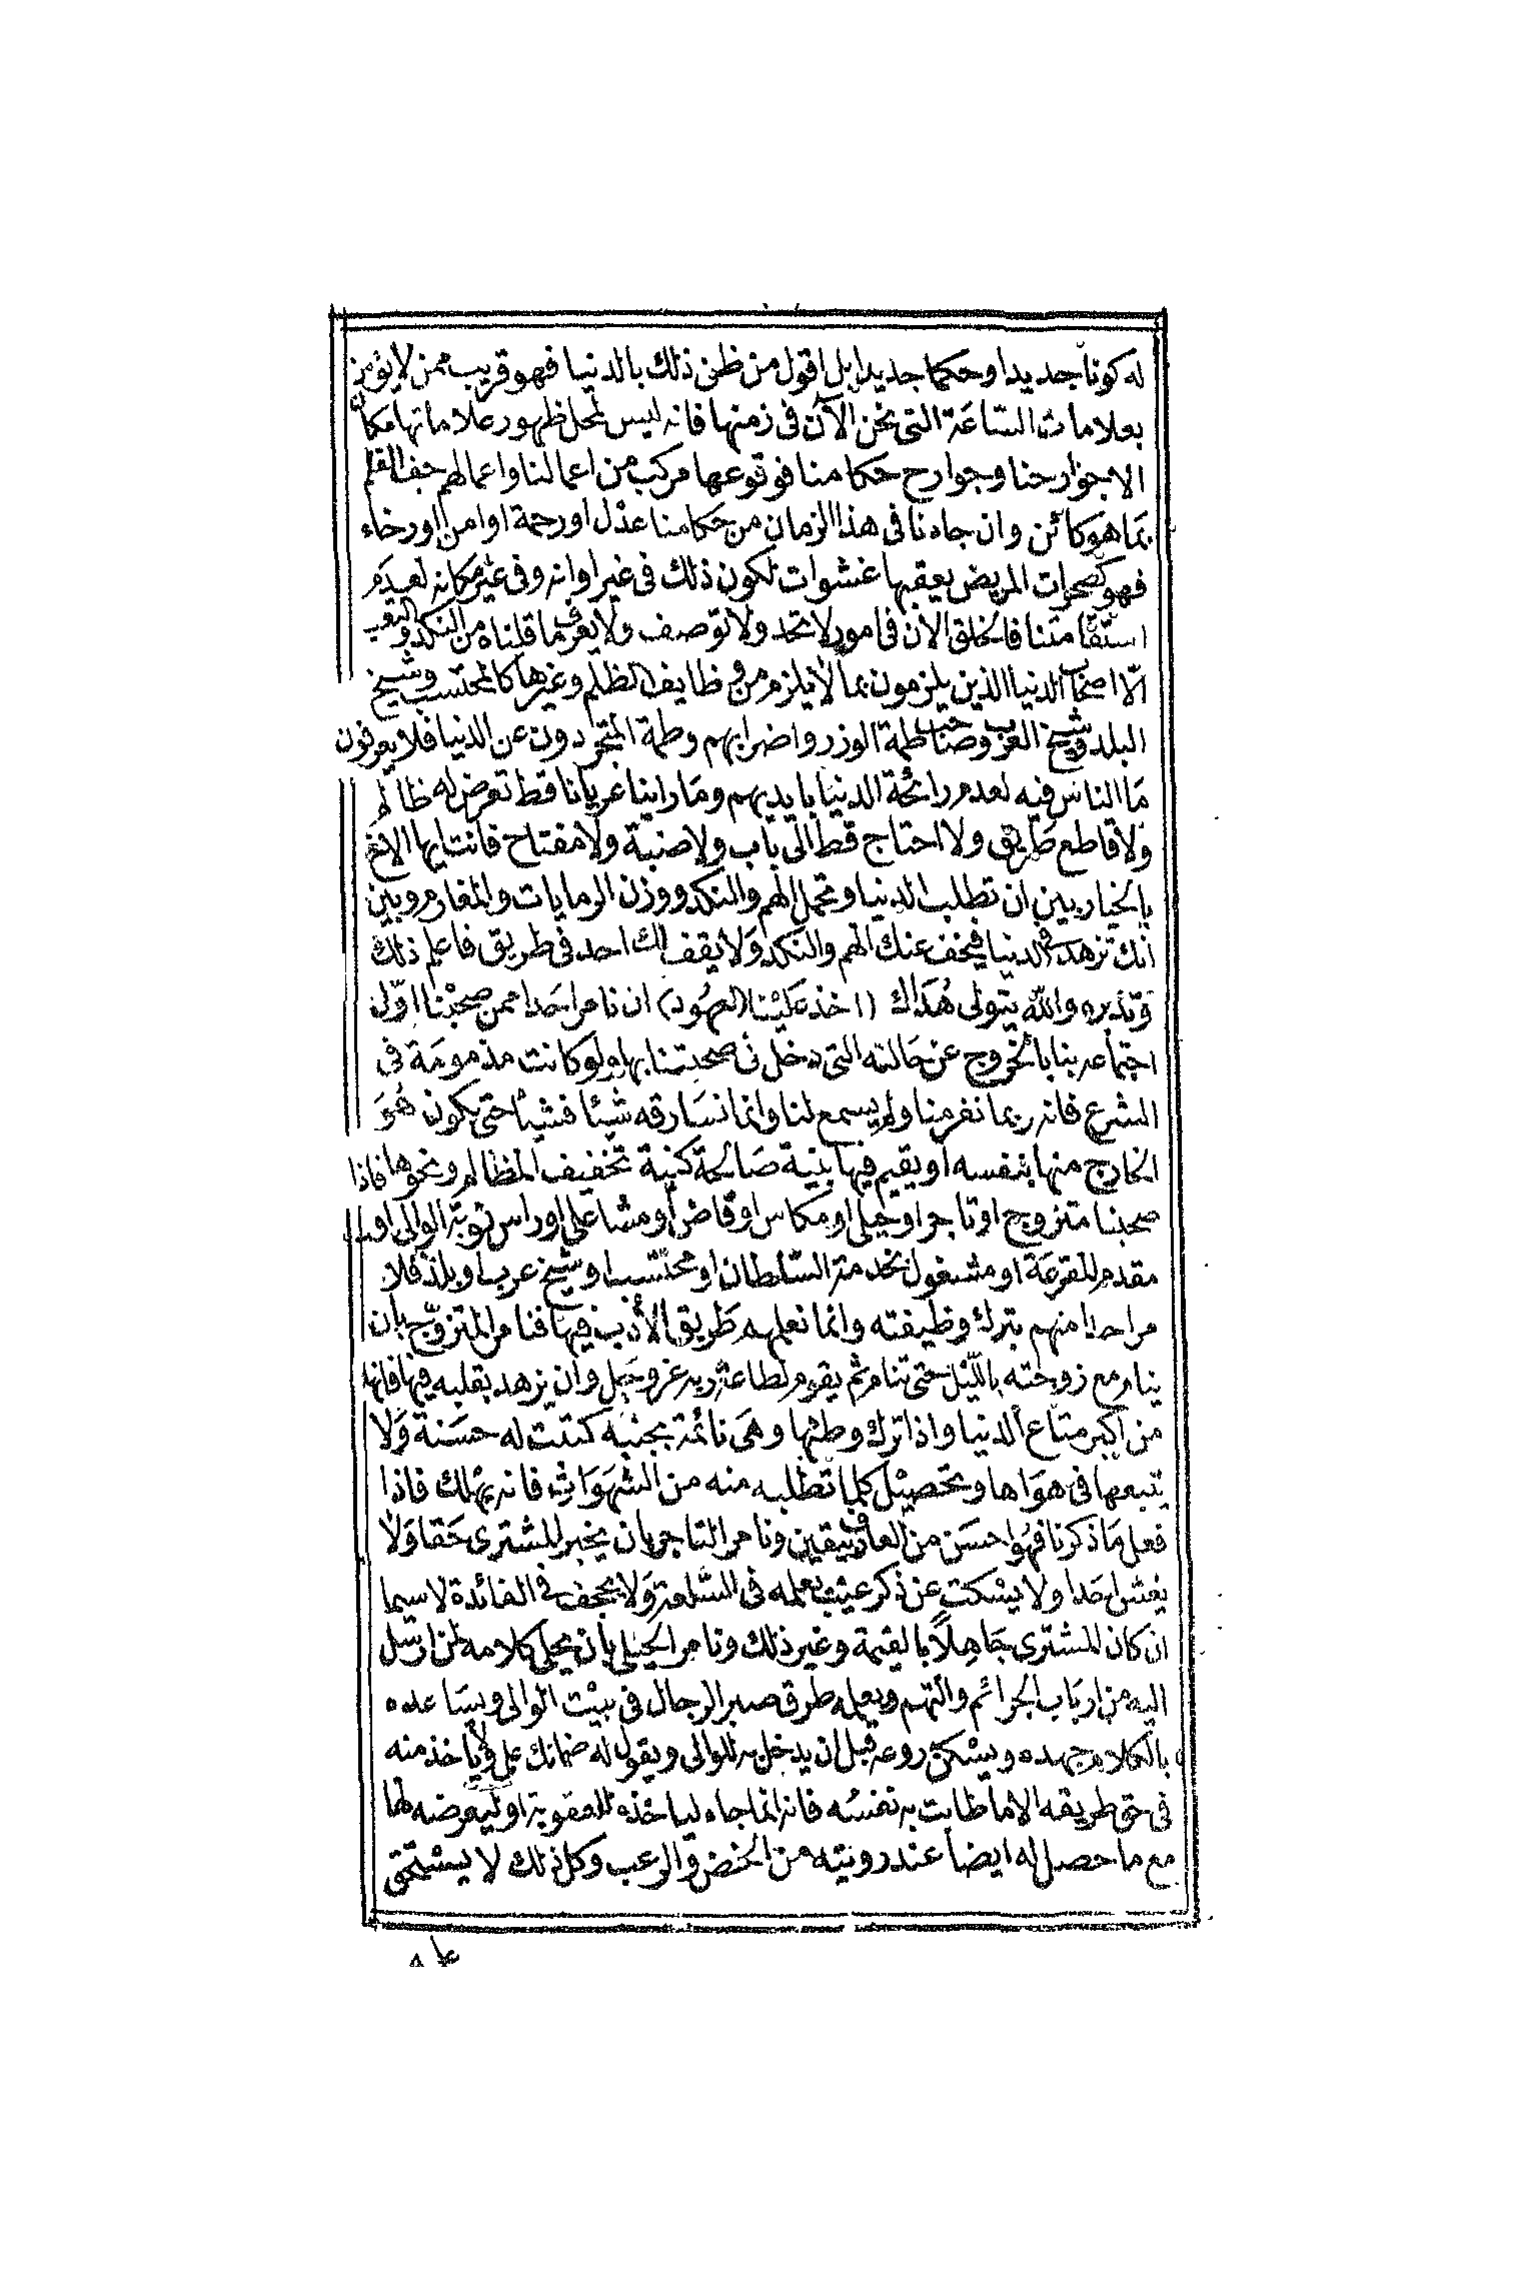 له كونا جديدا وحكما جديدا بل اقول من ظن ذلك بالدنيا فهو قريب ممن لا يؤمن
بعلامات الساعة التى نحن الآن فى زمنها فانه ليس لمحل ظهور علاماتها مكان
الا جوارحنا وجوارح حكامنا فوقوعها مركب من اعمالنا واعمالهم جف القلم
بما هو كائن وان جاءنا فى هذا الزمان من حكامنا عدل او رحمة او امن او رخاء
فهو كصحوات المريض يعقبها غشوات لكون ذلك فى غير اوانه وفى غير مكانه لعدم
استقامتنا فالخلق الآن فى امور لا تحد ولا توصف ولا يعرف ما قلناه من النكد والتعب
الا اصحاب الدنيا الذين يلزمون بما لا يلزم من وظايف الظلم وغيرها كالمحتسب وشيخ
البلد وشيخ العرب وصاحب طمة الوزر واضرابهم وطمة المتجردون عن الدنيا فلا يعرفون
ما الناس فيه لعدم رائحة الدنيا بايديهم وما راينا عريانا قط تعرض له ظالم
ولا قاطع طريق ولا احتاج قط الى باب ولا ضبة ولا مفتاح فانت ايها الاخ
بالخيار بين ان تطلب الدنيا وتحمل الهم والنكد ووزن الرمايات والمغارم وبين
انك تزهد فى الدنيا فيخف عنك الهم والنكد ولا يقف لك احد فى طريق فاعلم ذلك
وتدبره والله يتولى هداك (اخذ علينا العهود) ان نامر احدا ممن صحبنا اول
اجتماعه بنا بالخروج عن حالته التى دخل فى صحبتنا بها ولو كانت مذمومة فى
الشرع فانه ربما نفر منا ولم يسمع لنا وانما نسارقه شيئا فشيئا حتى يكون هو
الخارج منها بنفسه او يقيم فيها بنية صالحة كنية تخفيف المظالم ونحوها فاذا
صحبنا متزوج او تاجر او جبلى او مكاس او قاض او مشاعلى او راس نوبة الوالى او
مقدم للقرعة او مشغول بخدمة السلطان او محتسب او شيخ عرب او بلد فلا
مر احدا منهم بترك وظيفته وانما نعلمهم طريق الأدب فيها فنامر المتزوج بان
ينام مع زوجته بالليل حتى تنام ثم يقوم لطاعة ربه عز وجل وان يزهد بقلبه فيها فانها
من اكبر متاع الدنيا واذا ترك وطئها وهى نائمة بجنبه كتبت له حسنة ولا
يتبعها فى هواها وتحصيل كلما تطلبه منه من الشهوات فانه يهلك فاذا
فعل ما ذكرنا فهو احسن من العازفيقين ونامر التاجر بان يخبر المشترى حقا ولا
يغش احدا ولا يسكت عن ذكر عيب يعلمه فى السلعة ولا يجحف فى الفائدة لا سيما
ان كان المشترى جاهلا بالقيمة وغير ذلك ونامر الجبلى بان يحلى كلامه لمن ارسل
اليه من ارباب الجرائم والتهم ويعلمه طرق صبر الرجال فى بيت الوالى ويساعده
بالكلام جهده ويسكن روعه قبل ان يدخل به للوالى ويقول له ضمانك على ولا ياخذ منه
فى حق طريقه الا ما طابت به نفسه فانه انما جاء لياخذه للعقوبة او ليعرضه لها
مع ما حصل له ايضا عند رويته من الخض والرعب وكل ذلك لا يستحق